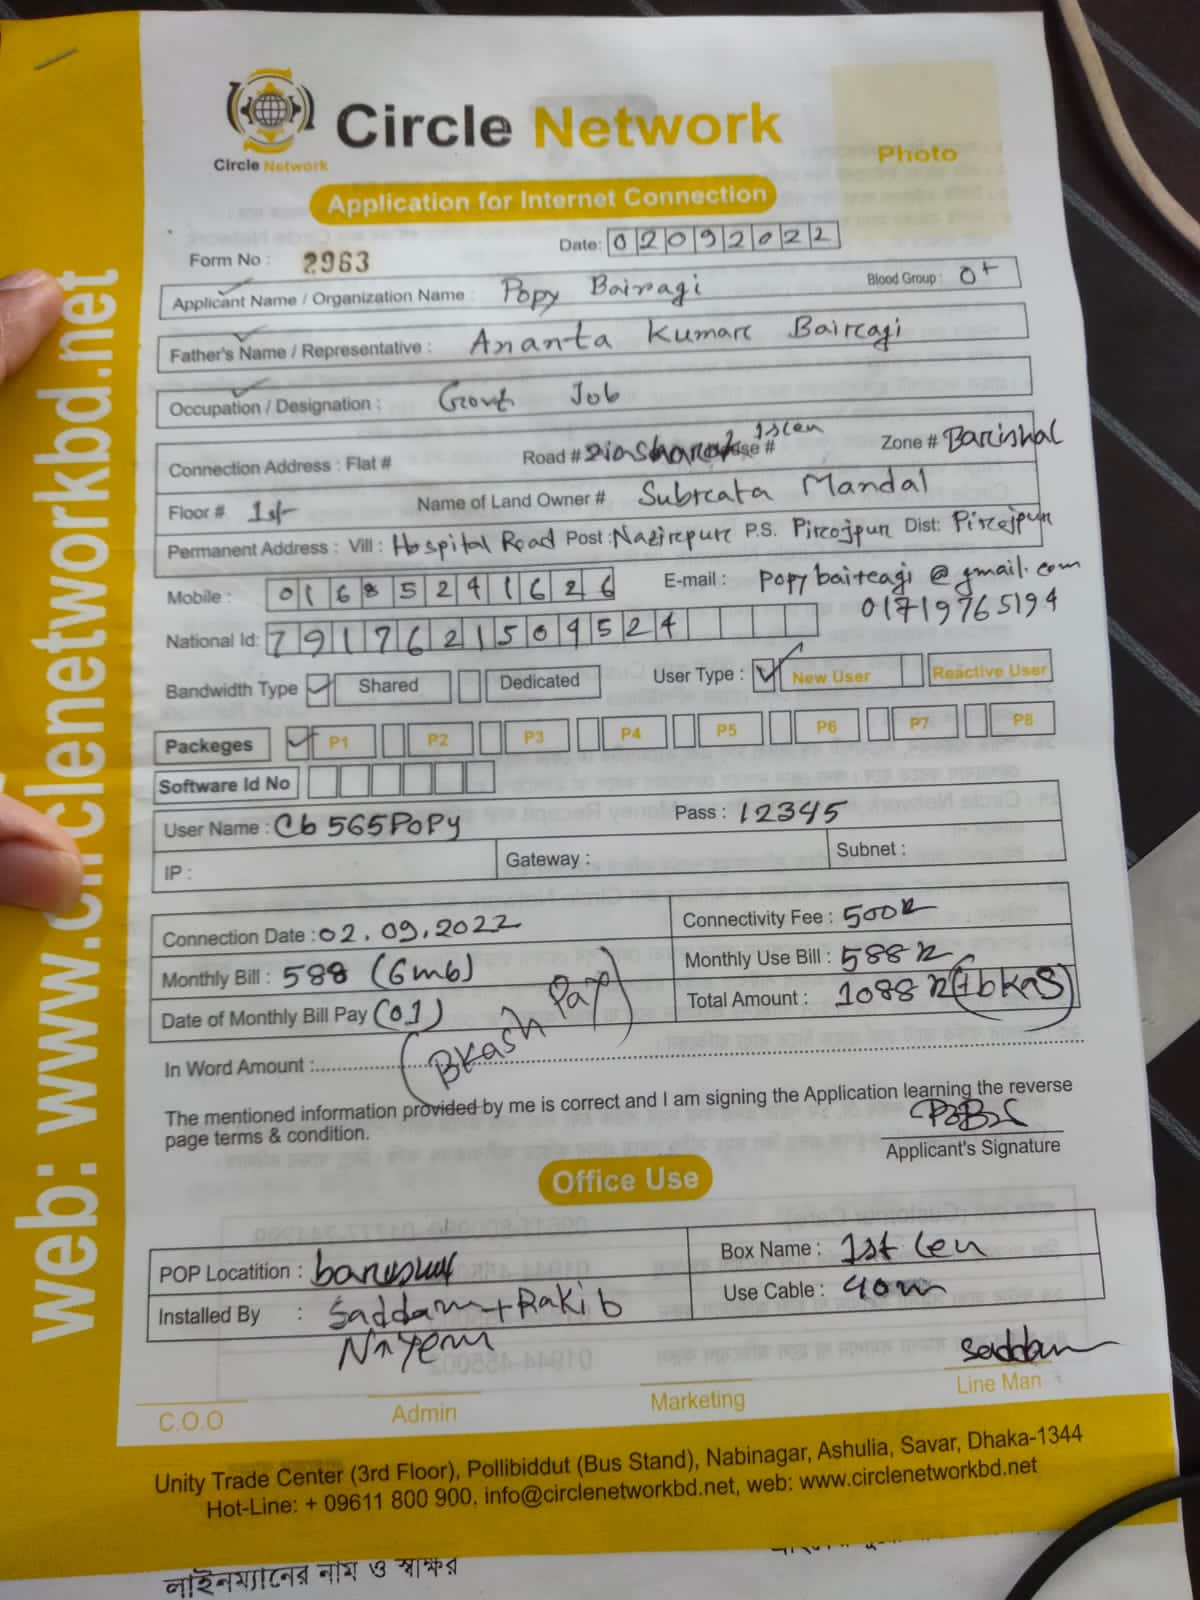 Circle Network
Circle Network
Photo
Application for Internet Connection
Date: 02092022
Form No : 2963
Applicant Name / Organization Name : Popy Bairagi Blood Group : O+
Father's Name / Representative : Ananta Kumarc Baircagi
Occupation / Designation : Govt Job
Connection Address : Flat # Road # House # 1st Len Zone # Barcishal
Floor # 1st Name of Land Owner # Subrcata Mandal
Permanent Address : Vill : Hospital Road Post : Nazircpurc P.S. Pircojpur Dist: Pircojpur
Mobile : 01685241626 E-mail : popybaircagi@gmail.com
01719765194
National Id: 7917621509524
Bandwidth Type Shared Dedicated User Type : New User Reactive User
Packeges P1 P2 P3 P4 P5 P6 P7 P8
Software Id No
User Name : Cb565POPY Pass : 12345
IP : Gateway : Subnet :
Connection Date : 02.09.2022 Connectivity Fee : 500/2
Monthly Bill : 588 (6mb) Monthly Use Bill : 588
Date of Monthly Bill Pay (01) Total Amount : 1088 (+bkas)
In Word Amount : (Bkash Pay)
The mentioned information provided by me is correct and I am signing the Application learning the reverse
page terms & condition.
Applicant's Signature
Office Use
POP Locatition : Box Name : 1st Len
Installed By : Saddam + Rakib Use Cable : 40m
Nayem
Saddam
C.O.O Admin Marketing Line Man
Unity Trade Center (3rd Floor), Pollibiddut (Bus Stand), Nabinagar, Ashulia, Savar, Dhaka-1344
Hot-Line: + 09611 800 900, info@circlenetworkbd.net, web: www.circlenetworkbd.net
লাইনম্যানের নাম ও স্বাক্ষর
web: www.circlenetworkbd.net